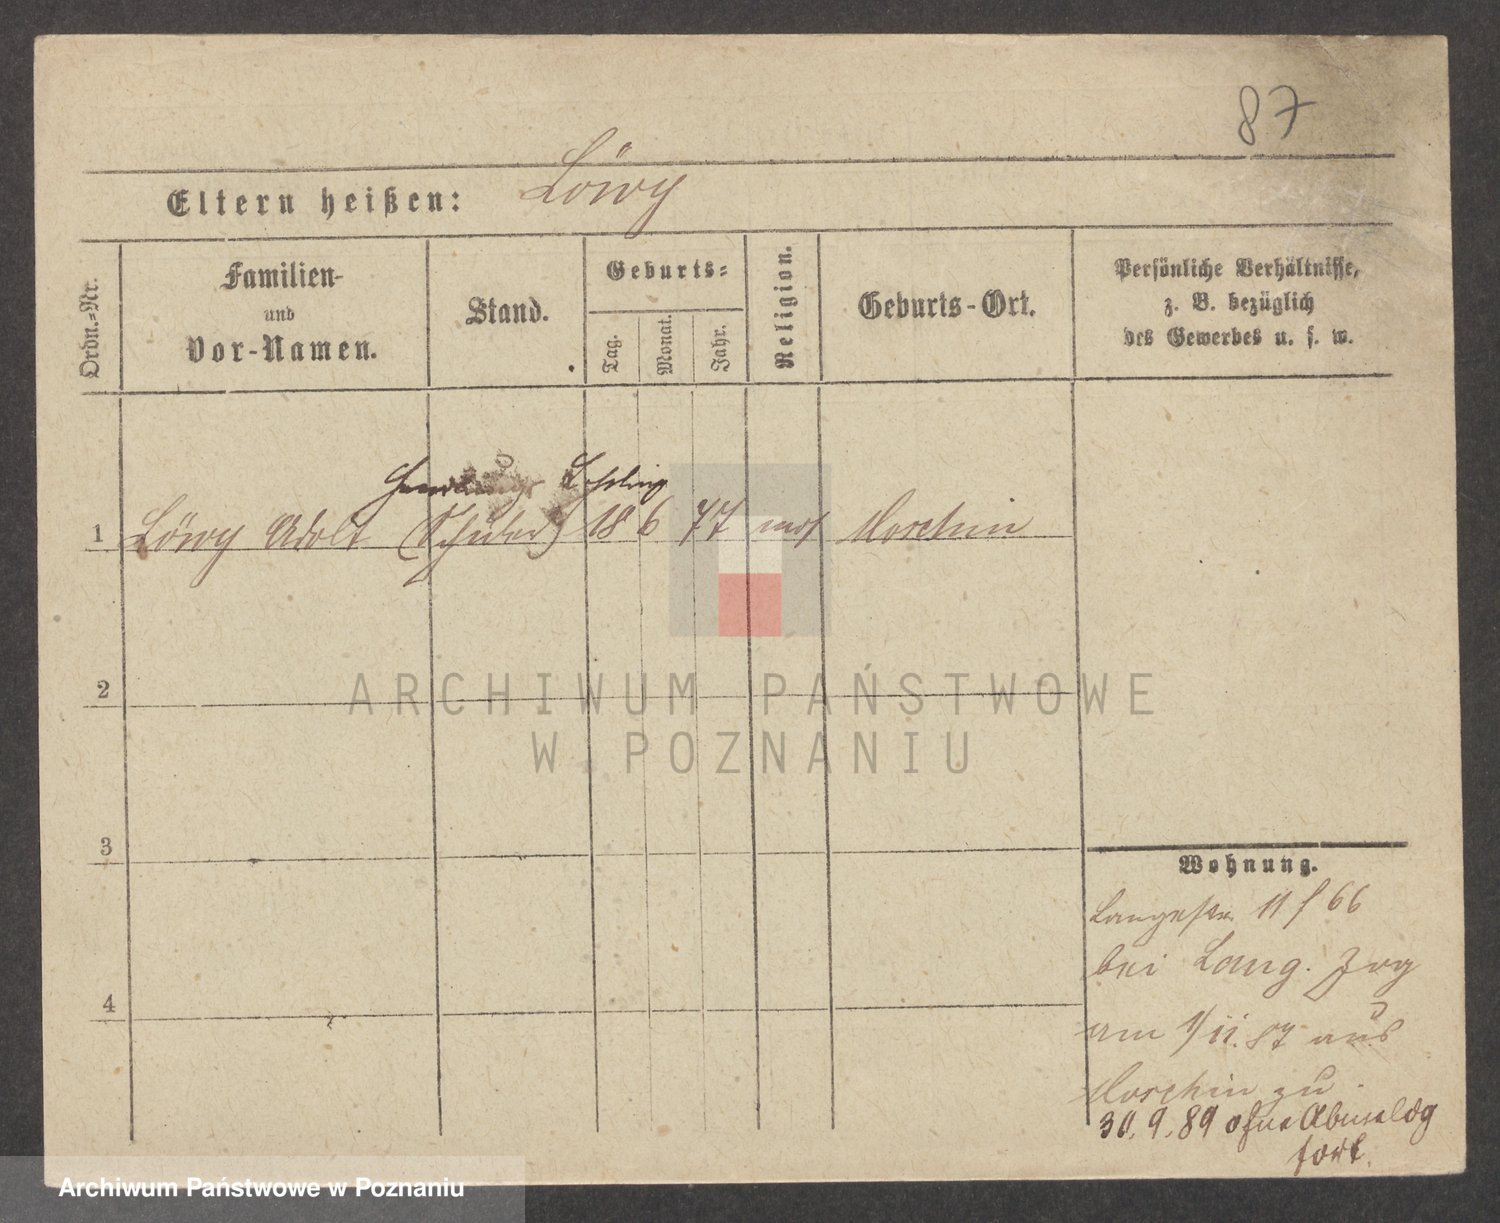 87
Eltern heißen: Löwy
Ordn.-Nr.
Familien-
und
Vor-Namen.
Stand.
Geburts-
Tag.
Monat.
Jahr.
Religion.
Geburts-Ort.
Persönliche Verhältnisse,
z. B. bezüglich
des Gewerbes u. s. w.
Handlungs Lehrling
1 Löwy Adolf (Schüler) 18 6 77 mos Moschin
2
3
4
Wohnung.
Langestr 11 / 66
bei Lang. Zog
am 1/11. 87 aus
Moschin zu.
30. 9. 89 ohne Abmeldg
fort.
ARCHIWUM PAŃSTWOWE
W POZNANIU
Archiwum Państwowe w Poznaniu